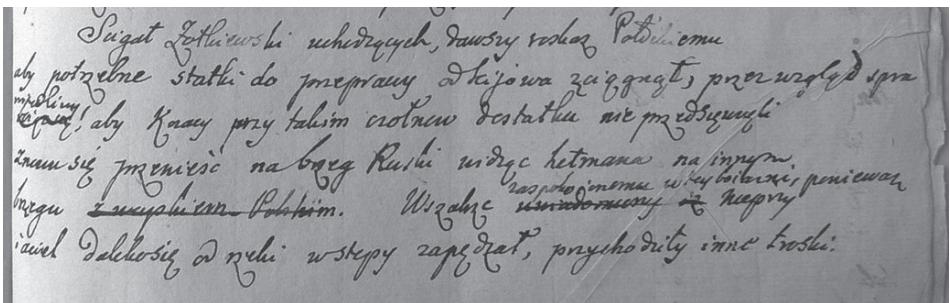 Scigał Żołkiewski uchodzących, dawszy roskaz
aby potrzebne statki do przeprawy od Kijowa zciągnął, przez wzgląd spra
aby Kozacy przy takim czołnow dostatku nie przedsięwzięli
znowu się przenieść na brzeg Ruski widząc hetmana na innym
zaspokoionemu w tey boiazni, ponieważ
brzegu z uzyskiem Polskim. Wszakze uwiadomiony iż Nieprzy
iaciel daleko się od rzeki w stepy zapędzał, przychodziły inne troski.